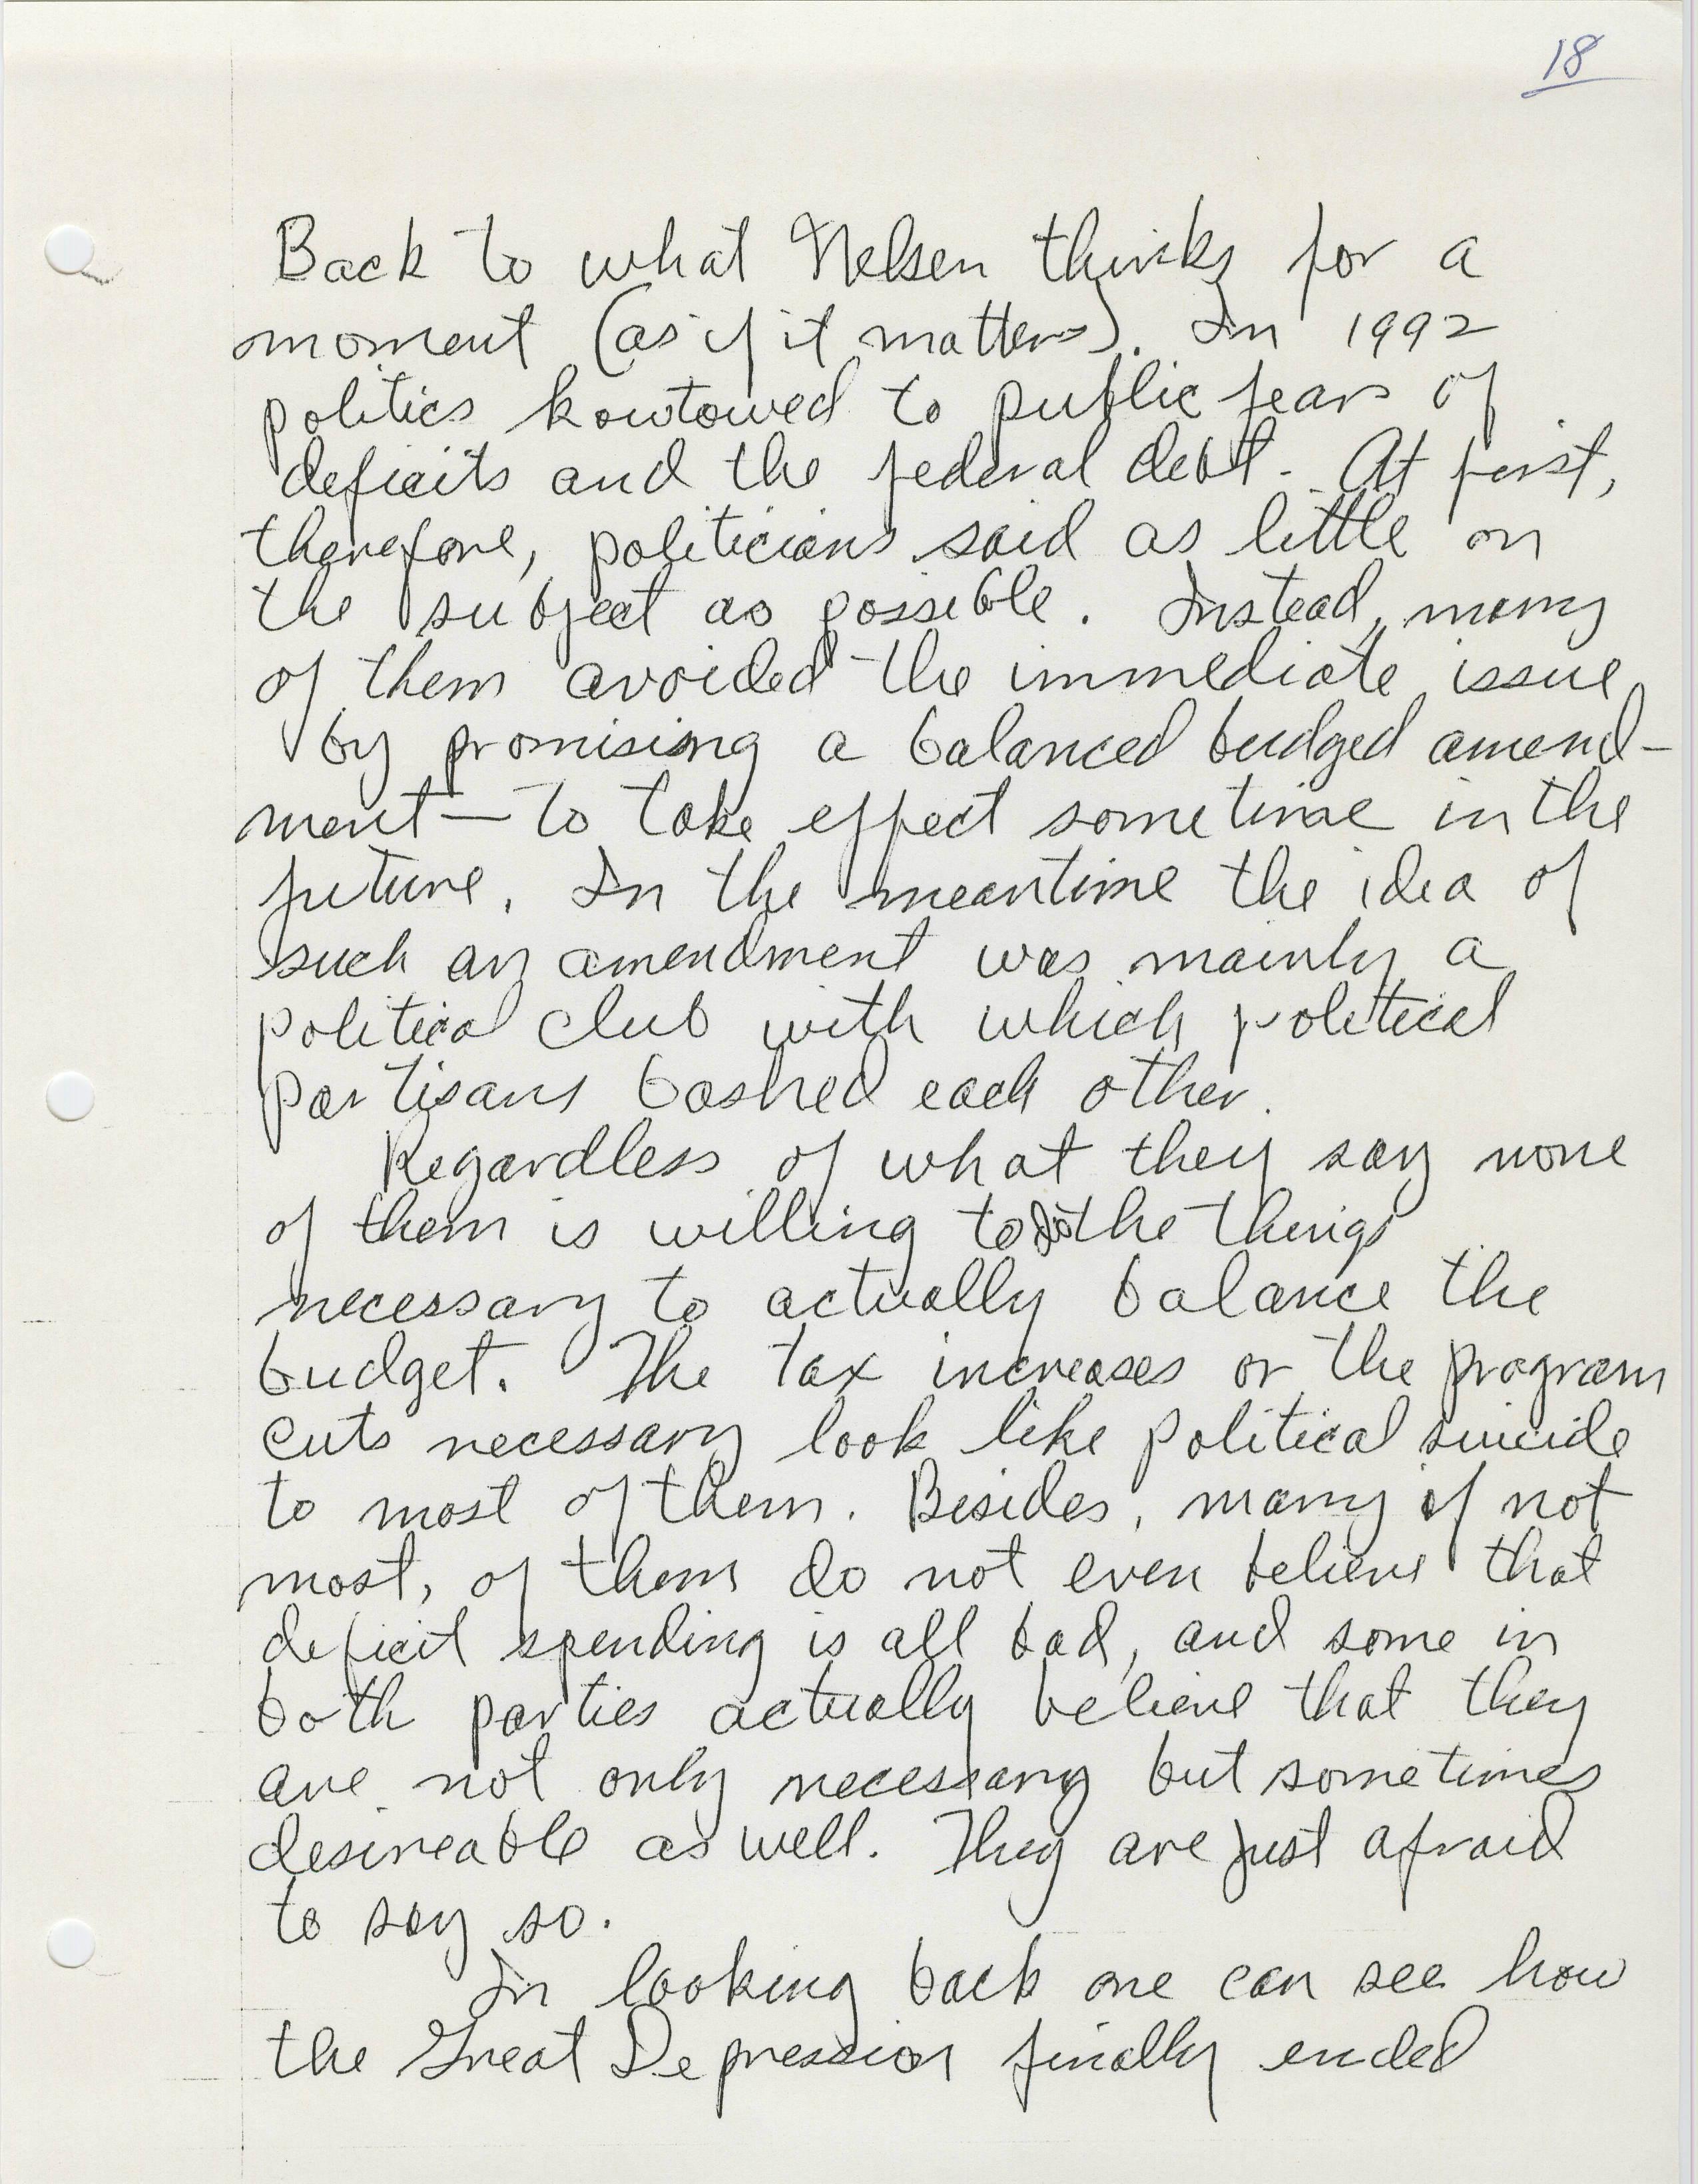 18
Back to what Nelsen thinks for a
moment (as if it matters). In 1992
politics kowtowed to public fears of
deficits and the federal debt. At first,
therefore, politicians said as little on
the subject as possible. Instead, many
of them avoided the immediate issue
by promising a balanced budged amend-
ment — to take effect sometime in the
future. In the meantime the idea of
such an amendment was mainly a
political club with which political
partisans bashed each other.
Regardless of what they say none
of them is willing to do the things
necessary to actually balance the
budget. The tax increases or the program
cuts necessary look like political suicide
to most of them. Besides, many if not
most, of them do not even believe that
deficit spending is all bad, and some in
both parties actually believe that they
are not only necessary but sometimes
desireable as well. They are just afraid
to say so.
In looking back one can see how
the Great Depression finally ended